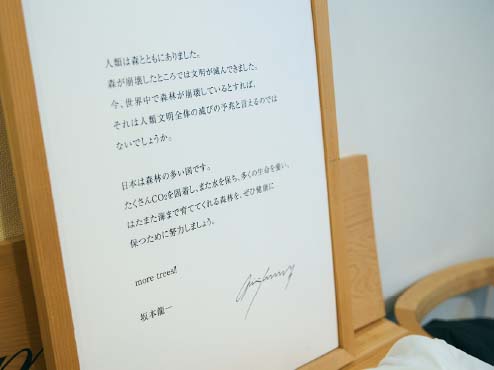 人類は森とともにありました。
森が崩壊したところでは文明が滅んできました。
今、世界中で森林が崩壊しているとすれば、
それは人類文明全体の滅びの予兆と言えるのでは
ないでしょうか。
日本は森林の多い国です。
たくさんCO2を固着し、また水を保ち、多くの生命を養い、
はたまた海まで育ててくれる森林を、ぜひ健康に
保つために努力しましょう。
more trees!!
坂本龍一